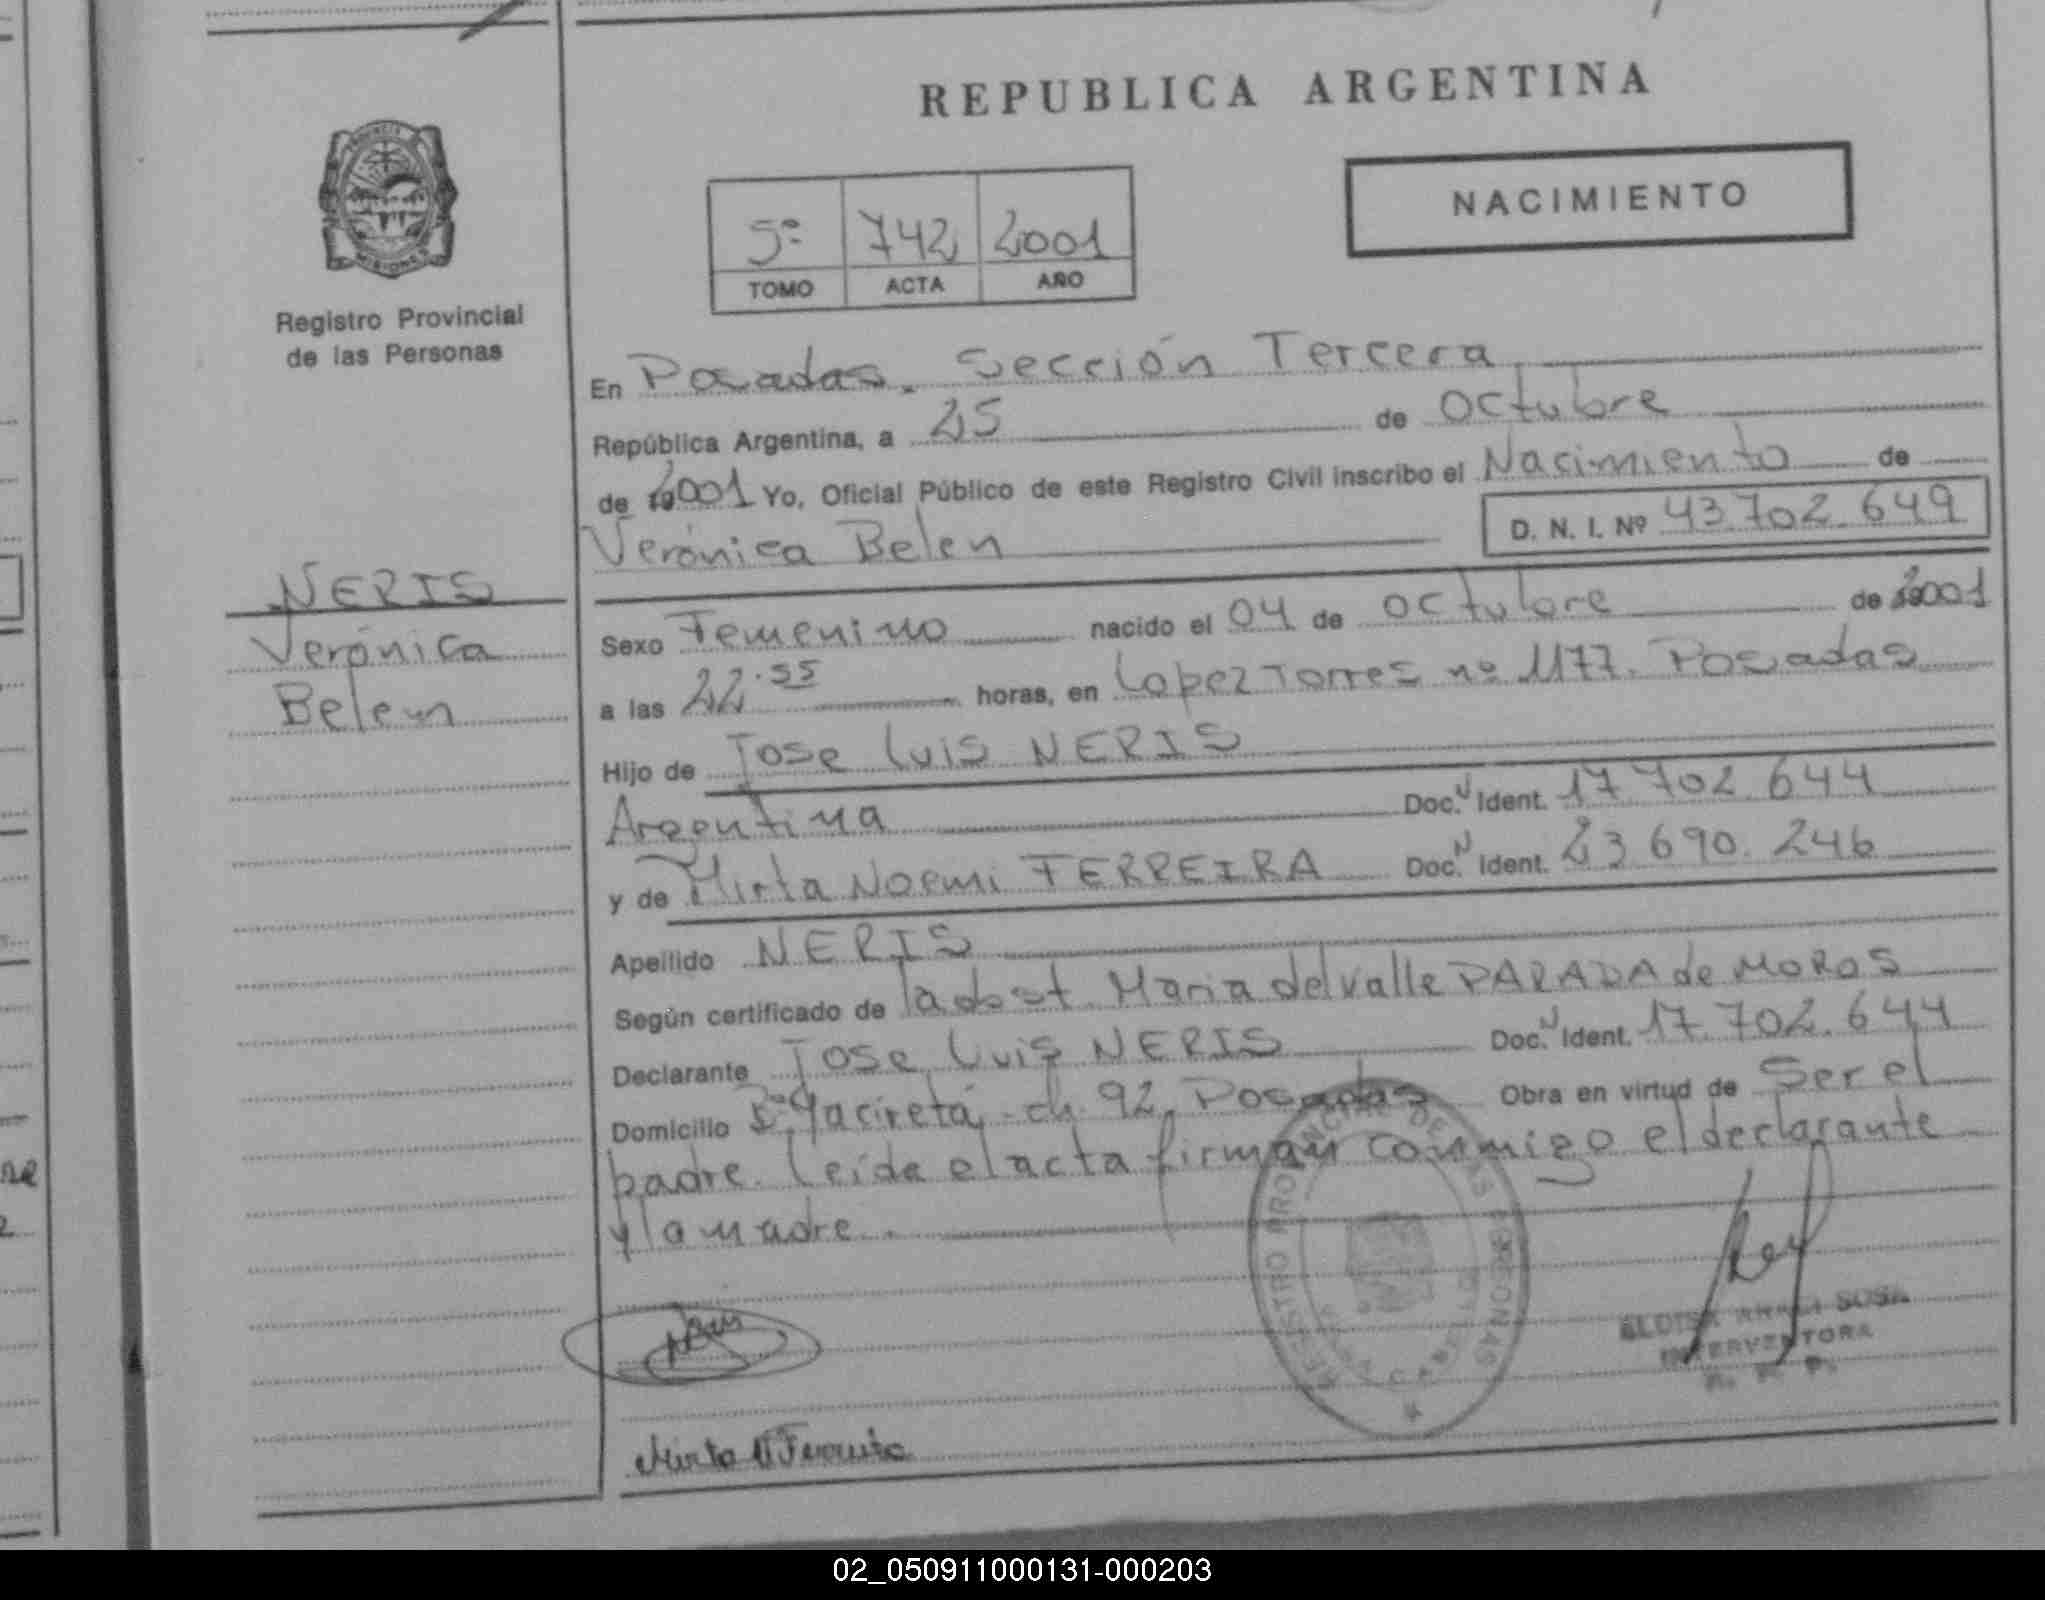 REPUBLICA ARGENTINA
NACIMIENTO
5º 742 2001
TOMO ACTA AÑO
PROVINCIA
MISIONES
Registro Provincial
de las Personas
NERIS
Verónica
Belen
En Posadas. Sección Tercera
República Argentina, a 25 de Octubre
de 2001 Yo, Oficial Público de este Registro Civil inscribo el Nacimiento de
Verónica Belen D. N. I. Nº 43.702.649
Sexo Femenino nacido el 04 de octubre de 2001
a las 22.55 horas, en Lopez Torres nº 1177. Posadas
Hijo de Jose Luis NERIS
Argentina Doc. N Ident. 17.702.644
y de Mirta Noemi FERREIRA Doc. N Ident. 23.690.246
Apellido NERIS
Según certificado de la obst. Maria del Valle PARADA de MOROS
Declarante Jose Luis NERIS Doc. N Ident. 17.702.644
Domicilio Bº Yacireta, ch. 92. Posadas Obra en virtud de Ser el
padre. Leída el acta firman conmigo el declarante
y la madre.
REGISTRO PROVINCIAL DE LAS PERSONAS
ELOISA ANALI SOSA
INTERVENTORA
R. P. P.
Mirta N Ferreira
02_050911000131-000203